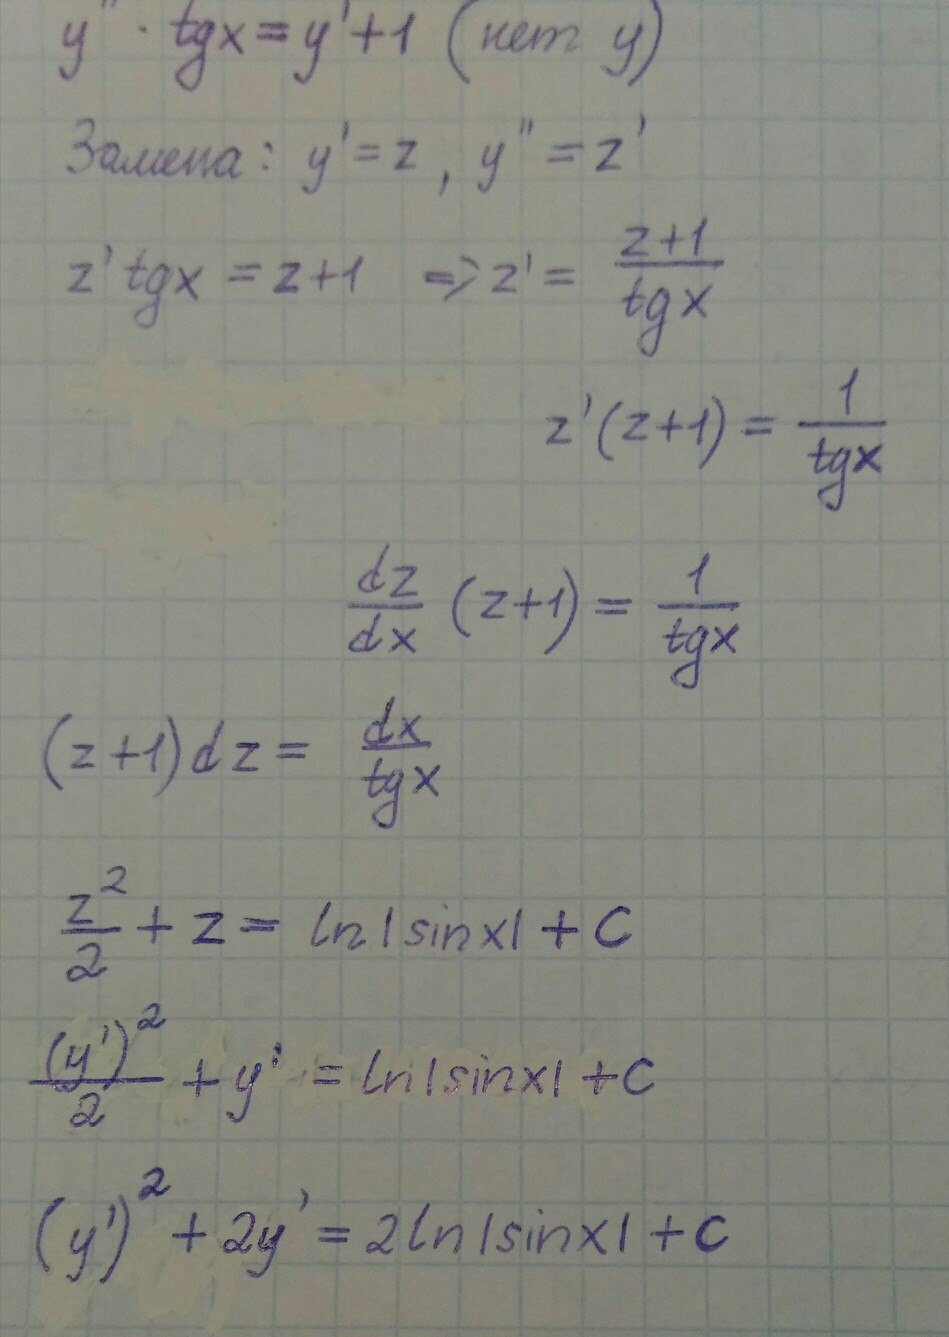 y'' · tgx = y' + 1 (нет y)
Замена: y' = z, y'' = z'
z' tgx = z + 1 => z' = (z+1)/(tgx)
z'(z+1) = 1/(tgx)
dz/dx (z+1) = 1/(tgx)
(z+1)dz = dx/(tgx)
z²/2 + z = ln|sinx| + C
(y')²/2 + y' = ln|sinx| + C
(y')² + 2y' = 2ln|sinx| + C